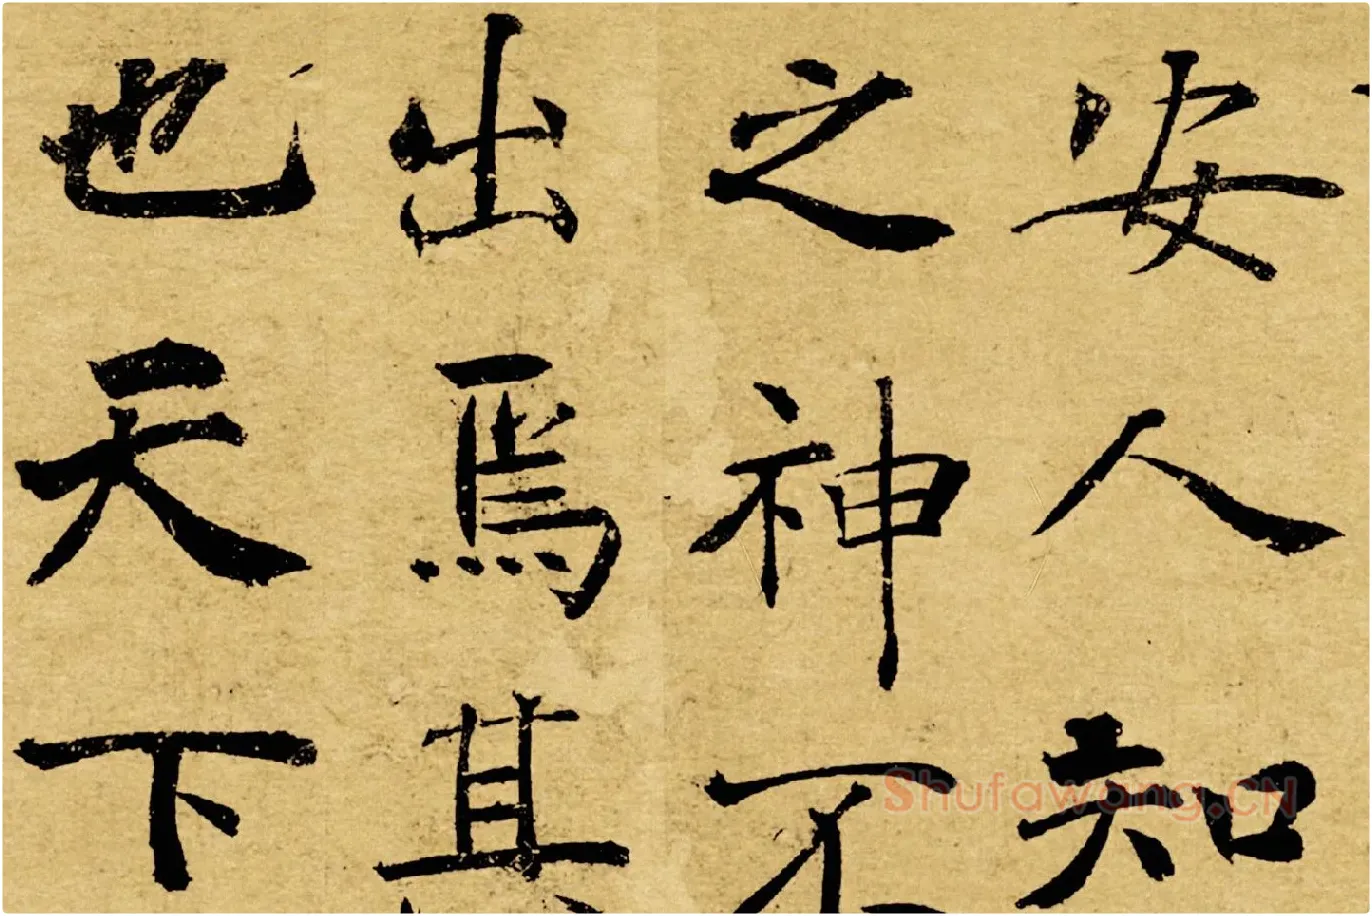 安人知
之神不
出焉其
也天下
Shufawang.CN